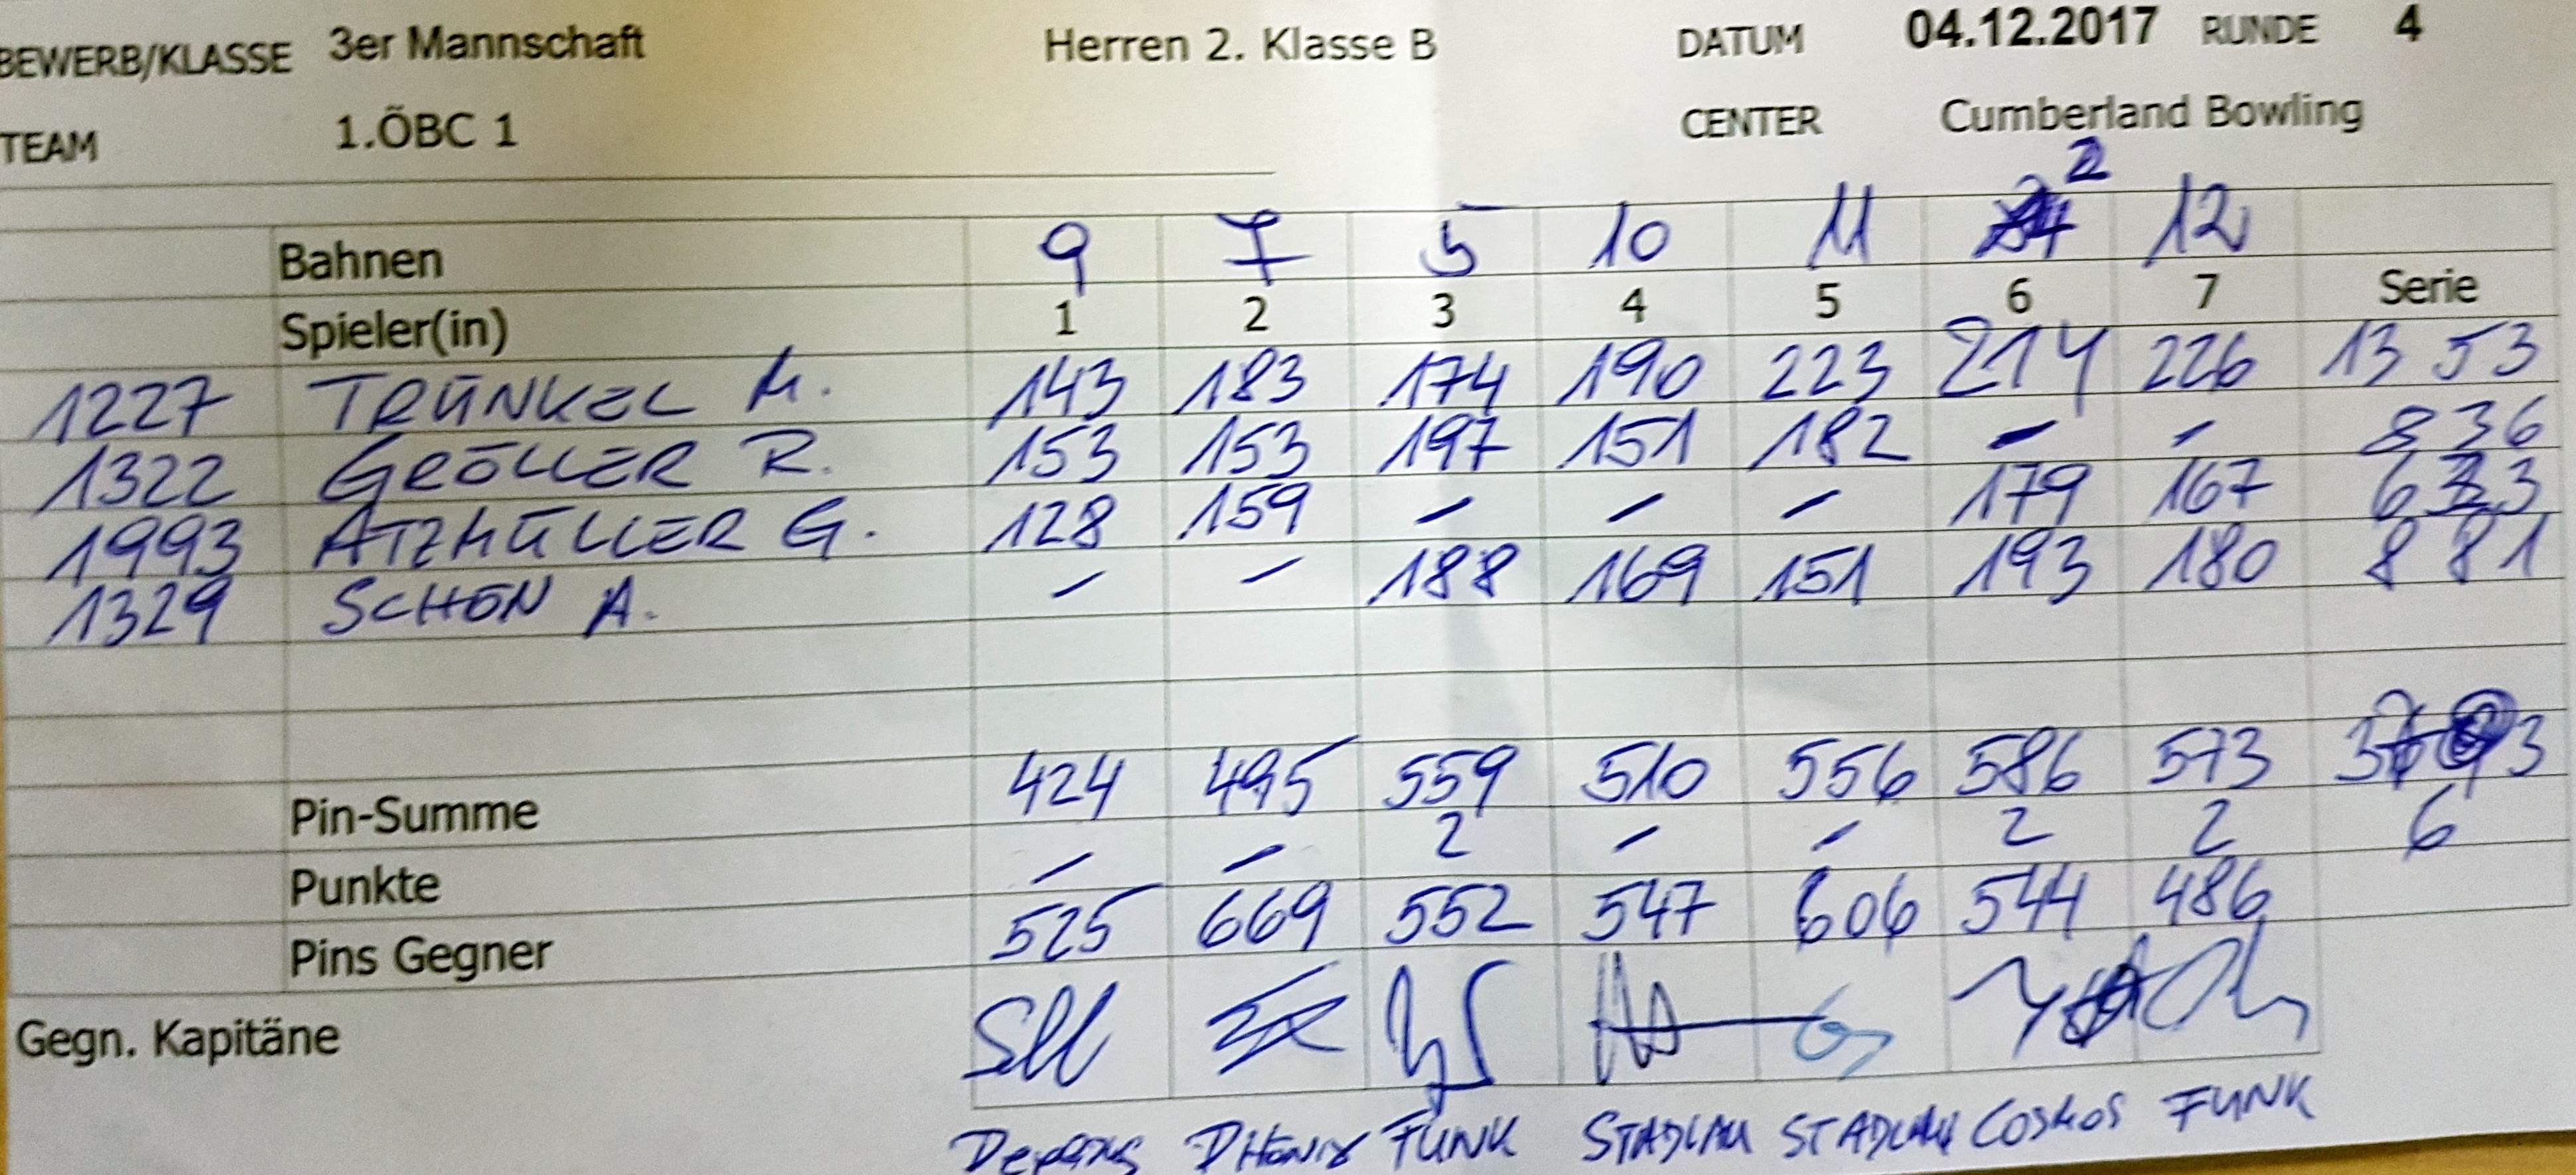 BEWERB/KLASSE 3er Mannschaft Herren 2. Klasse B DATUM 04.12.2017 RUNDE 4
TEAM 1.ÖBC 1 CENTER Cumberland Bowling
2
Bahnen 9 7 5 10 11 12
Spieler(in) 1 2 3 4 5 6 7 Serie
1227 TRÜNKEL M. 143 183 174 190 223 214 226 1353
1322 GRÖLLER R. 153 153 197 151 182 - - 836
1993 ATZMÜLLER G. 128 159 - - - 179 167 633
1329 SCHÖN A. - - 188 169 151 193 180 881
Pin-Summe 424 495 559 510 556 586 573
Punkte - - 2 - - 2 2 6
Pins Gegner 525 669 552 547 606 544 486
Gegn. Kapitäne
PHÖNIX FUNK STADLAU STADLAU COSMOS FUNK